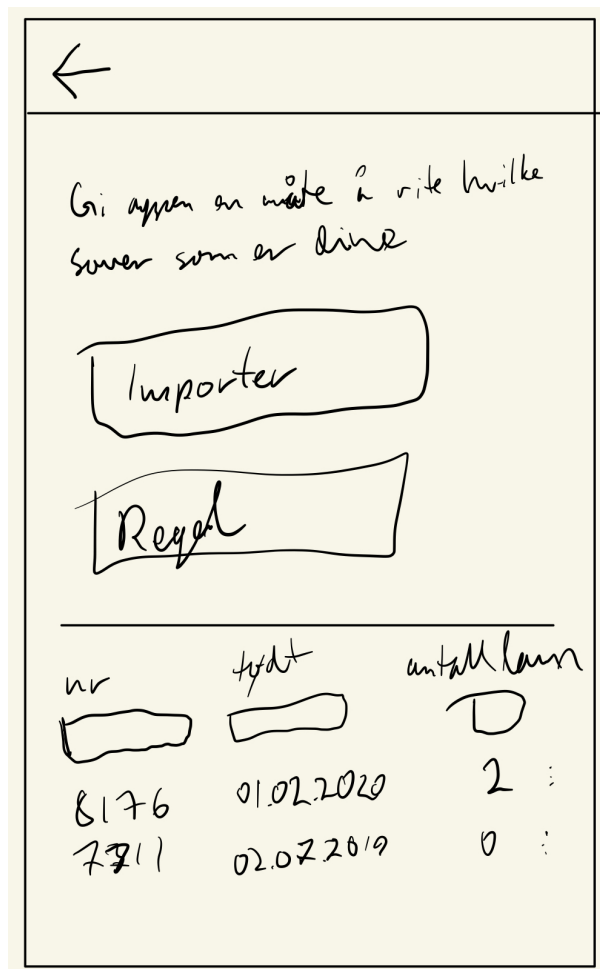 Gi appen en måte å vite hvilke
sauer som er dine
Importer
Regel
nr født antall lam
8176 01.02.2020 2
02.07.2019 0